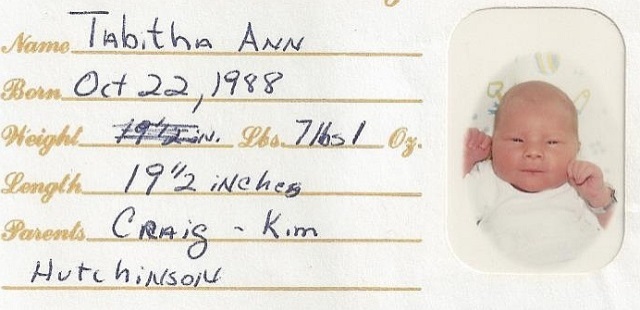 Name Tabitha Ann
Born Oct 22, 1988
Weight 19 1/2 in. Lbs. 7 lbs 1 Oz.
Length 19 1/2 inches
Parents Craig - Kim
Hutchinson